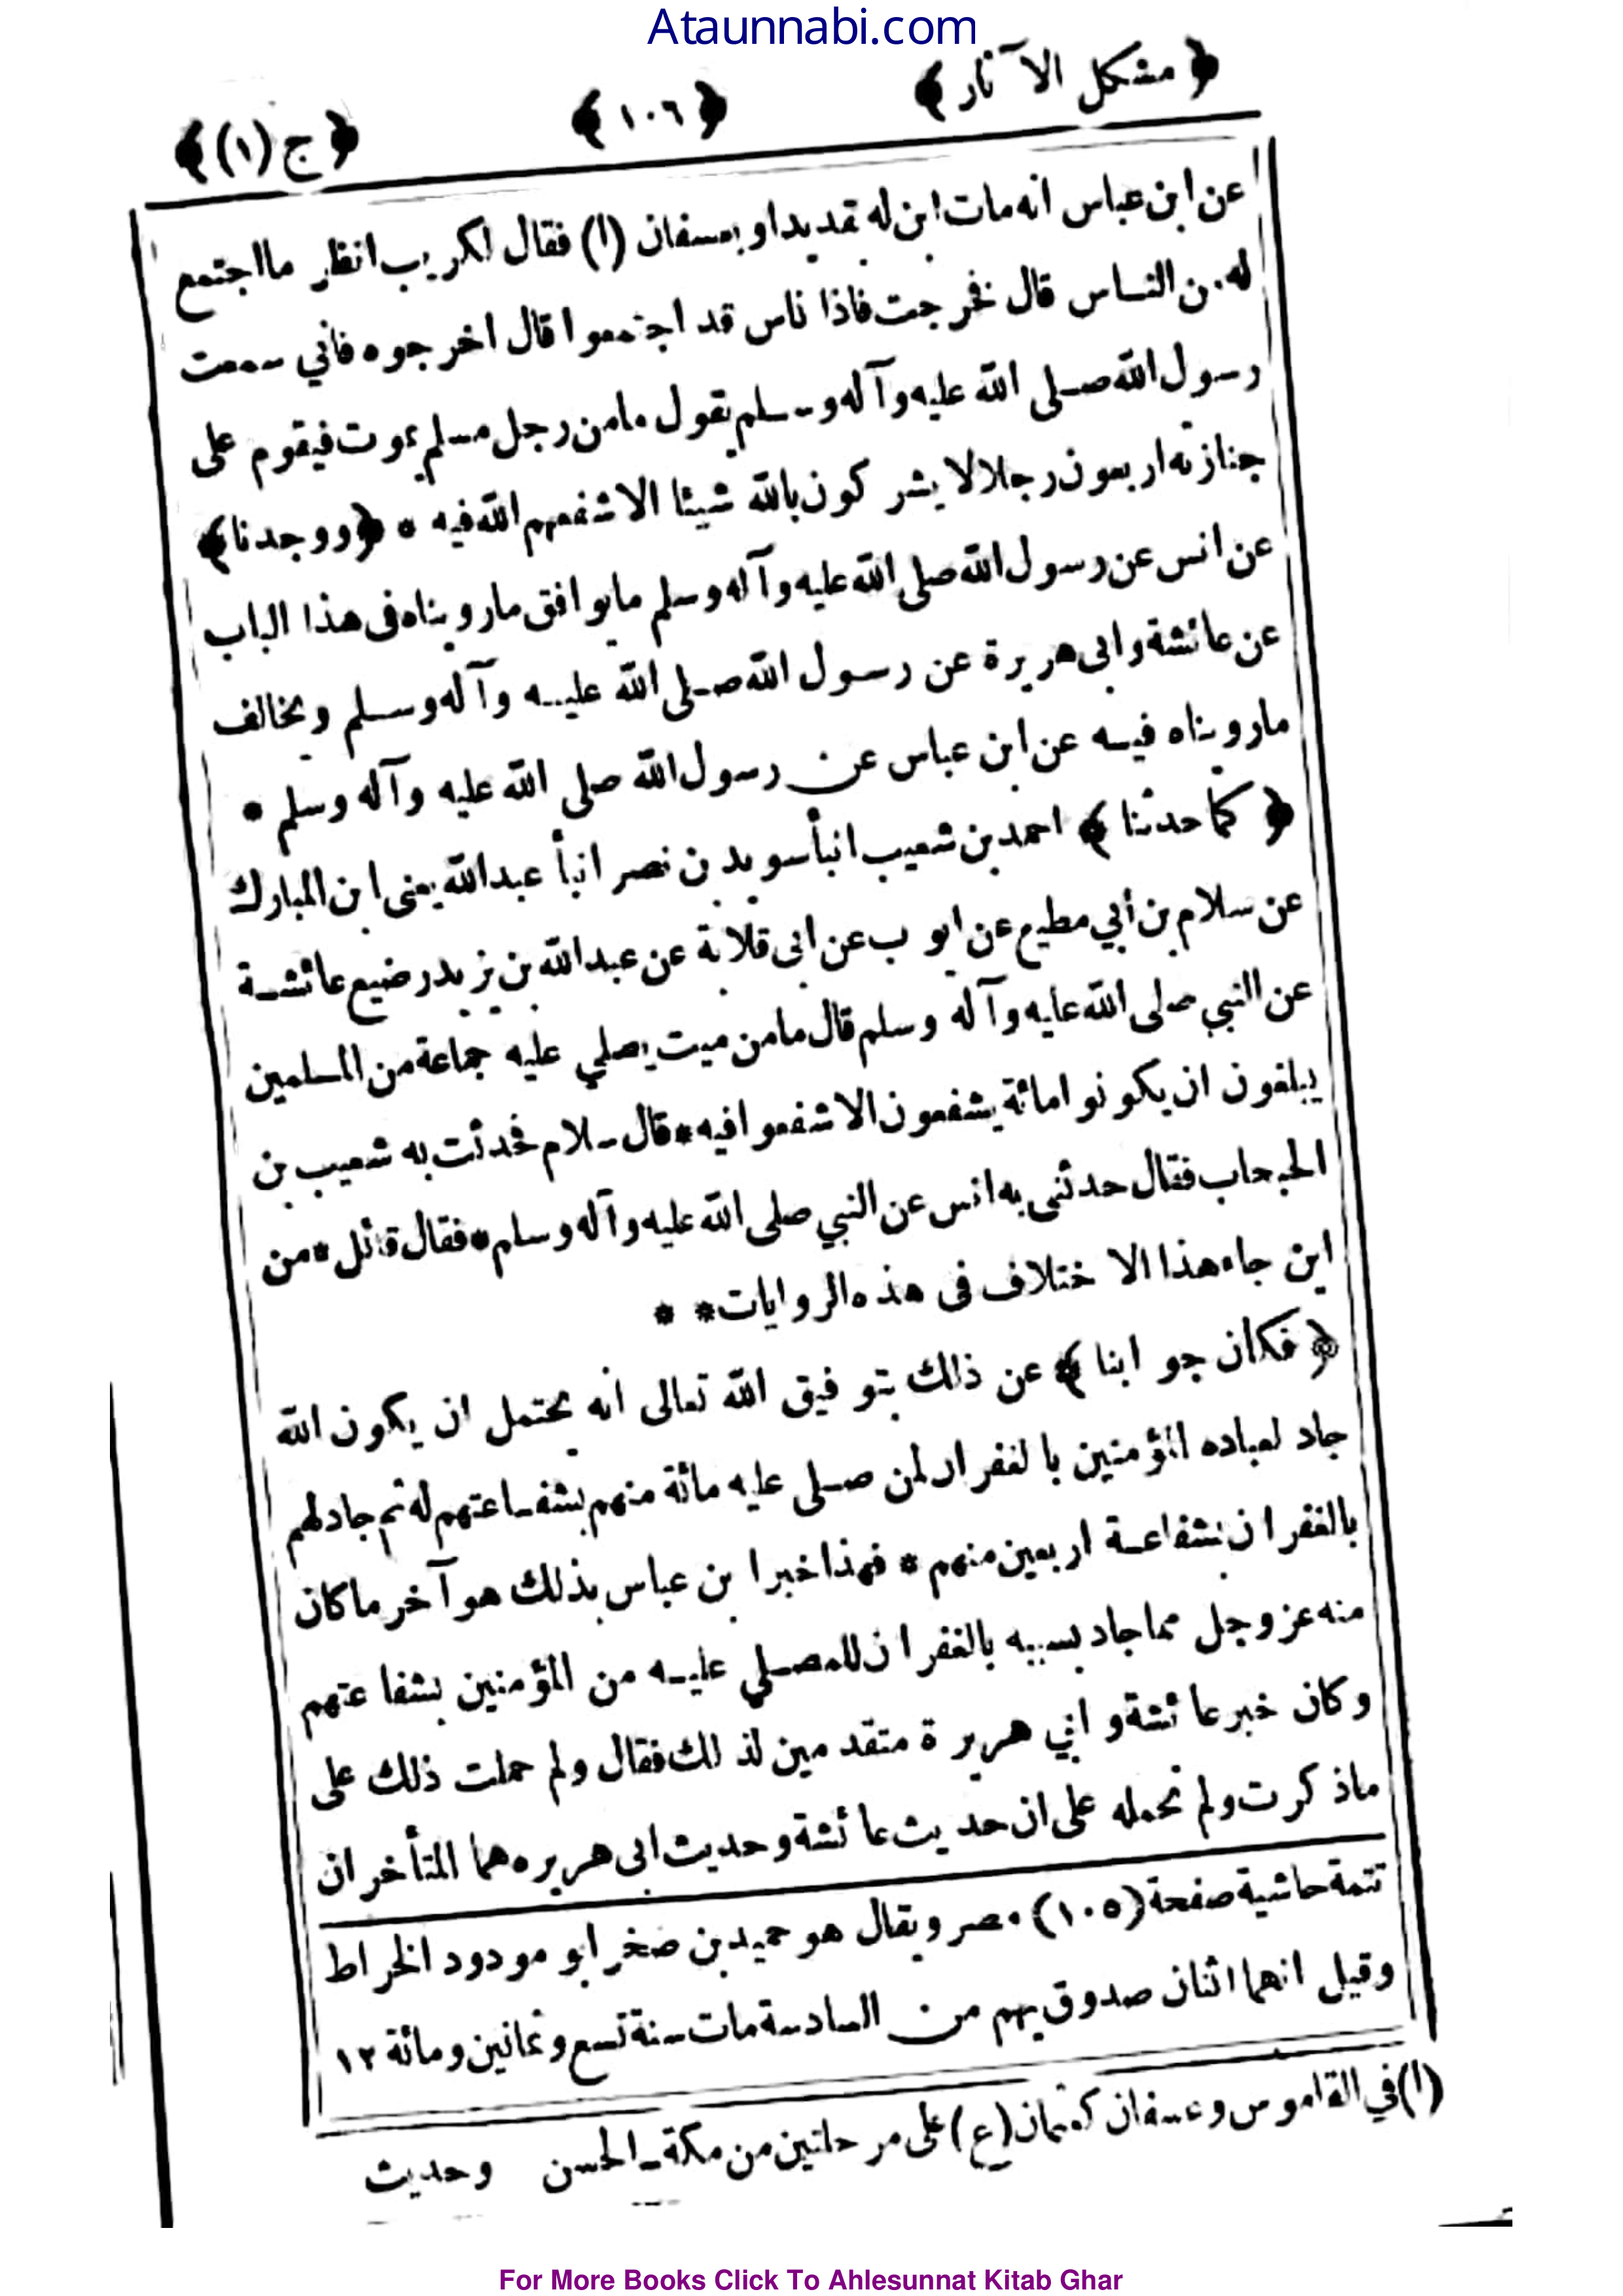 Ataunnabi.com
﴿ مشكل الآثار ﴾ ﴿ ١٠٦ ﴾ ﴿ ج (١) ﴾
عن ابن عباس انه مات ابن له بقديد او بعسفان (١) فقال لكريب انظر ما اجتمع
له من الناس قال فخرجت فاذا ناس قد اجتمعوا قال اخرجوه فاني سمعت
رسول الله صلى الله عليه وآله وسلم يقول ما من رجل مسلم يموت فيقوم على
جنازته اربعون رجلا لا يشركون بالله شيئا الا شفعهم الله فيه * ﴿ ووجدنا ﴾
عن انس عن رسول الله صلى الله عليه وآله وسلم ما يوافق ما رويناه فى هذا الباب
عن عائشة وابى هريرة عن رسول الله صلى الله عليه وآله وسلم ويخالف
ما رويناه فيه عن ابن عباس عن رسول الله صلى الله عليه وآله وسلم *
﴿ كما حدثنا ﴾ احمد بن شعيب انبأ سويد بن نصر انبأ عبد الله يعنى ابن المبارك
عن سلام بن أبي مطيع عن ايوب عن ابى قلابة عن عبد الله بن يزيد رضيع عائشة
عن النبي صلى الله عليه وآله وسلم قال ما من ميت يصلي عليه جماعة من المسلمين
يبلغون ان يكونوا مائة يشفعون الا شفعوا فيه * قال سلام فحدثت به شعيب بن
الحبحاب فقال حدثنى به انس عن النبي صلى الله عليه وآله وسلم * فقال قائل * من
اين جاء هذا الاختلاف فى هذه الروايات * *
﴿ فكان جوابنا ﴾ عن ذلك بتوفيق الله تعالى انه يحتمل ان يكون الله
جاد لعباده المؤمنين بالغفران لمن صلى عليه مائة منهم بشفاعتهم له ثم جاد لهم
بالغفران بشفاعة اربعين منهم * فهذا خبر ابن عباس بذلك هو آخر ما كان
منه عز وجل مما جاد بسببه بالغفران للمصلي عليه من المؤمنين بشفاعتهم
وكان خبر عائشة وابي هريرة متقدمين لذلك فقال ولم حملت ذلك على
ما ذكرت ولم تحمله على ان حديث عائشة وحديث ابى هريره هما المتأخران
تتمة حاشية صفحة (١٠٥) مصر ويقال هو حميد بن صخر ابو مودود الخراط
وقيل انهما اثنان صدوق يهم من السادسة مات سنة تسع وثمانين ومائة ١٢
(١) في القاموس وعسفان كعثمان (ع) على مرحلتين من مكة ـ الحسن وحديث
For More Books Click To Ahlesunnat Kitab Ghar